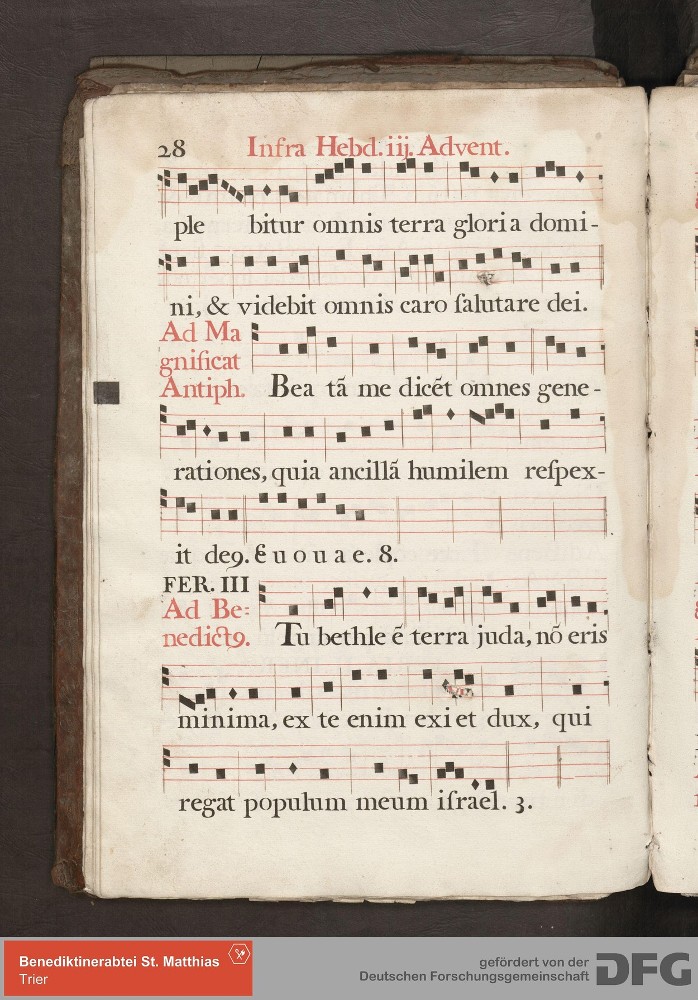 28 Infra Hebd. iij. Advent.
ple bitur omnis terra gloria domi-
ni, & videbit omnis caro ſalutare dei.
Ad Ma
gnificat
Antiph. Bea tã me dicẽt omnes gene-
rationes, quia ancillã humilem reſpex-
it de9. E u o u a e. 8.
FER. III
Ad Be:
nedict9. Tu bethle ẽ terra juda, nõ eris
minima, ex te enim exiet dux, qui
regat populum meum iſrael. 3.
Benediktinerabtei St. Matthias
Trier
gefördert von der
Deutschen Forschungsgemeinschaft DFG